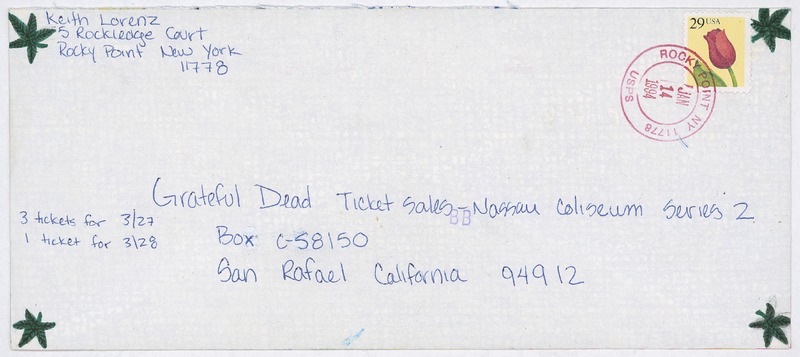 Keith Lorenz
5 Rockledge Court
Rocky Point New York
11778
29 USA
ROCKY POINT NY 11778
USPS
JAN
14
1994
Grateful Dead Ticket Sales-Nassau Coliseum Series 2
BB
3 tickets for 3/27
1 ticket for 3/28
Box C-58150
San Rafael California 94912